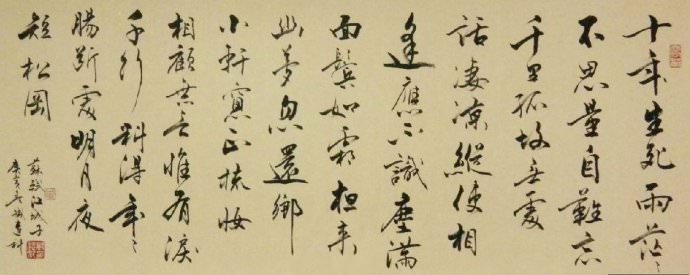 十年生死兩茫々
不思量自難忘
千里孤坟無處
話凄涼縱使相
逢應不識塵滿
面鬢如霜夜来
幽夢忽還鄉
小軒窗正梳妝
相顧無言惟有淚
千行料得年々
腸斷處明月夜
短松岡
蘇軾江城子